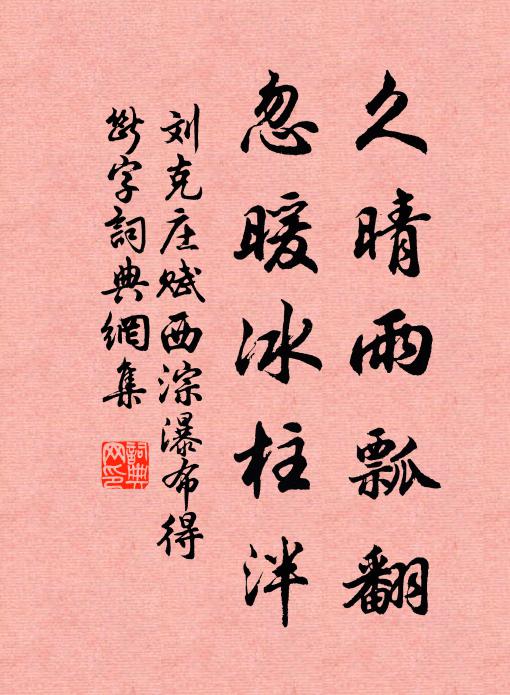 久晴雨瓢翻
忽暖冰柱泮
刘克庄赋西淙瀑布得
断字詞典網集
詞典
网印